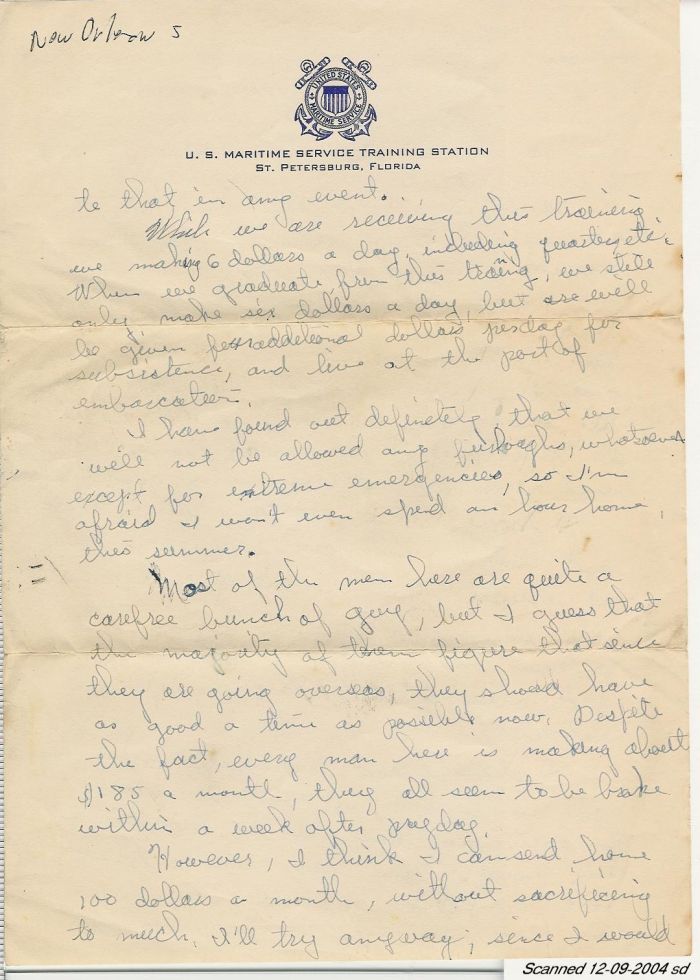 New Orleans
UNITED STATES
MARITIME SERVICE
U. S. MARITIME SERVICE TRAINING STATION
ST. PETERSBURG, FLORIDA
to that in any event.
While we are receiving this training
we making 6 dollars a day, including quarters, etc.
When we graduate from this training, we still
only make six dollars a day, but are well
be given additional dollars per day for
subsistence, and live at the port of
embarcation.
I have found out definitely that we
will not be allowed any furloughs, whatsoever
except for extreme emergencies, so I'm
afraid I won't even spend an hour home,
this summer.
Most of the men here are quite a
carefree bunch of guy, but I guess that
the majority of them figure that since
they are going overseas, they should have
as good a time as possible now. Despite
the fact, every man here is making about
$185 a month, they all seem to be broke
within a week after payday.
However, I think I can send home
100 dollars a month, without sacrificing
to much. I'll try anyway, since I would
Scanned 12-09-2004 sd